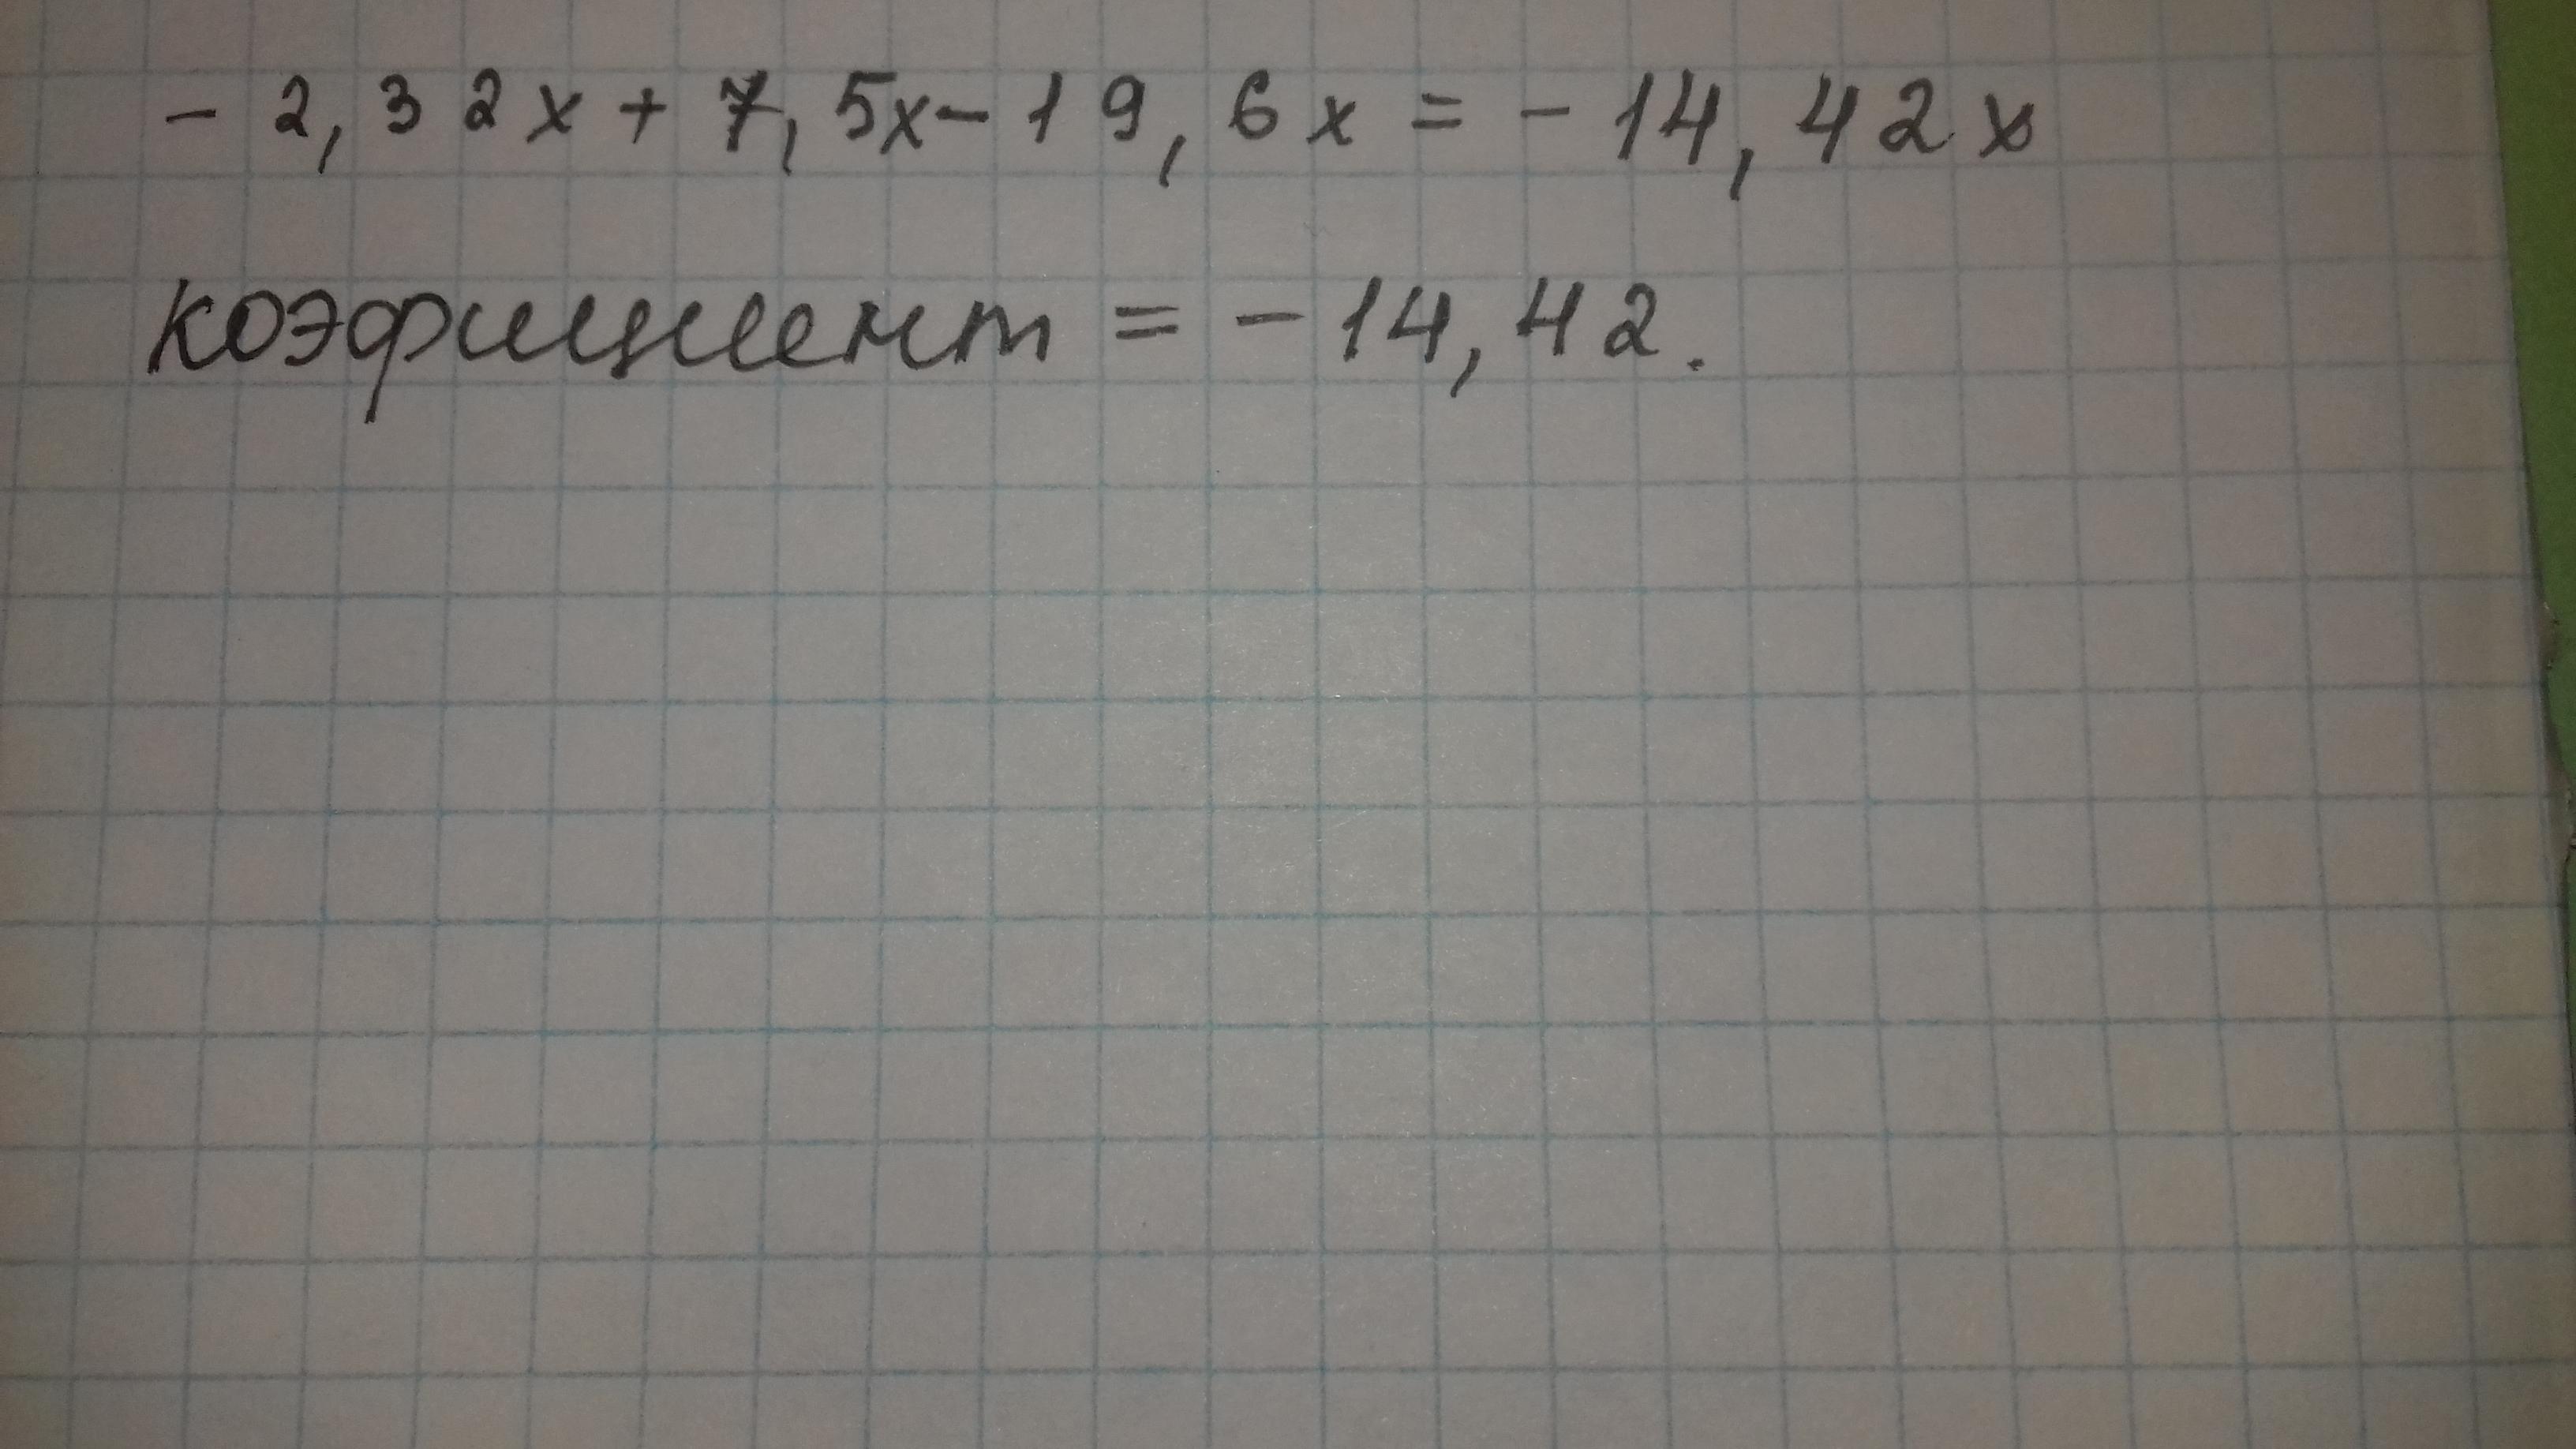 - 2,32x + 7,5x - 19,6x = - 14,42x
коэфициент = - 14,42.